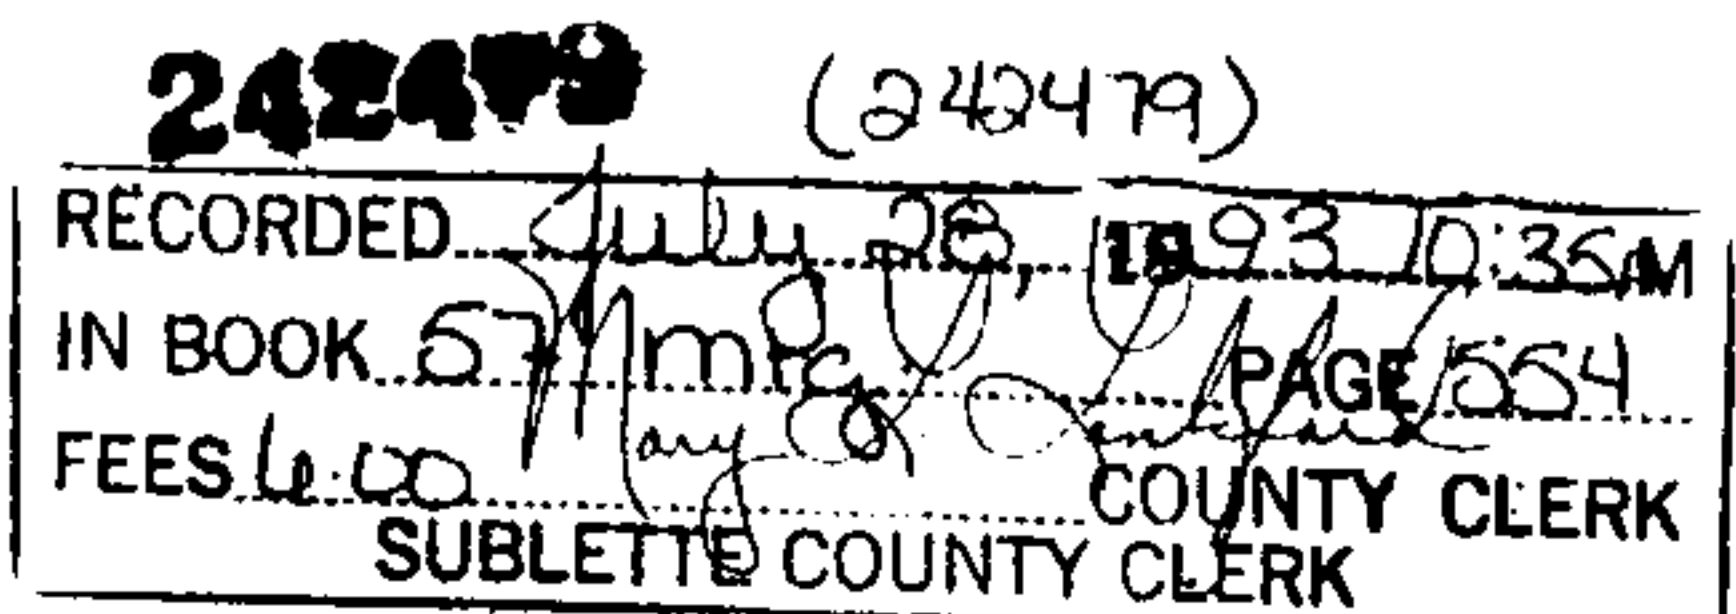 242479 (242479)
RECORDED July 28, 1993 10:35AM
IN BOOK 57 Mtg PAGE 554
FEES 6.00 Mary COUNTY CLERK
SUBLETTE COUNTY CLERK